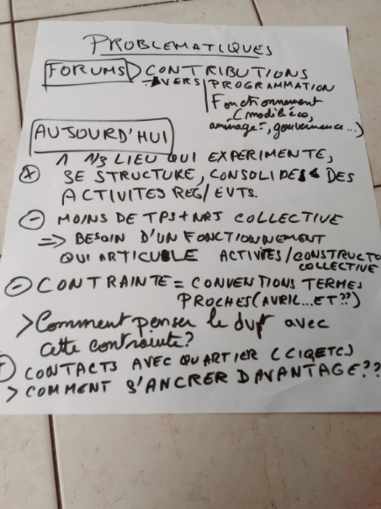 PROBLEMATIQUES
FORUMS > CONTRIBUTIONS
→ VERS | PROGRAMMATION
Fonctionnement
(modèle éco,
aménagt, gouvernance...)
AUJOURD'HUI
1 LIEU QUI EXPERIMENTE,
SE STRUCTURE, CONSOLIDE DES
ACTIVITES REG/EVTS.
- MOINS DE TPS + COLLECTIVE
=> BESOIN D'UN FONCTIONNEMENT
QUI ARTICULE ACTIVITES/CONSTRUCTO
COLLECTIVE
- CONTRAINTE = CONVENTIONS TERMES
PROCHES (AVRIL...ET??)
> Comment penser le dvpt avec
cette contrainte?
CONTACTS AVEC QUARTIER (CIQETC)
> COMMENT S'ANCRER DAVANTAGE??